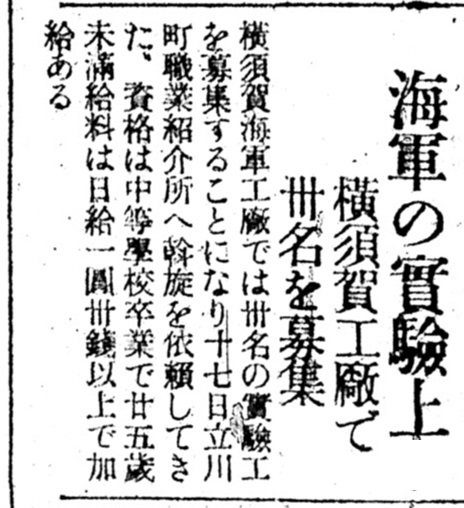 海軍の實驗工
横須賀工廠で
卅名を募集
横須賀海軍工廠では卅名の實驗工
を募集することになり十七日立川
町職業紹介所へ斡旋を依頼してき
た、資格は中等學校卒業で廿五歳
未滿給料は日給一圓卅錢以上で加
給ある